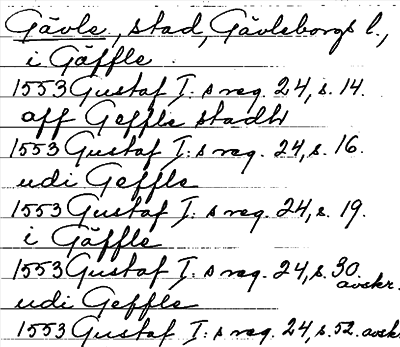 Gävle, stad, Gävleborgs l.,
i Gäffle
1553 Gustaf I:s reg. 24, s. 14.
aff Geffle stadh
1553 Gustaf I:s reg. 24, s. 16.
udi Geffle
1553 Gustaf I:s reg. 24, s. 19.
i Gäffle
1553 Gustaf I:s reg. 24, s. 30.
avskr.
udi Geffle
1553 Gustaf I:s reg. 24, s. 52. avskr.